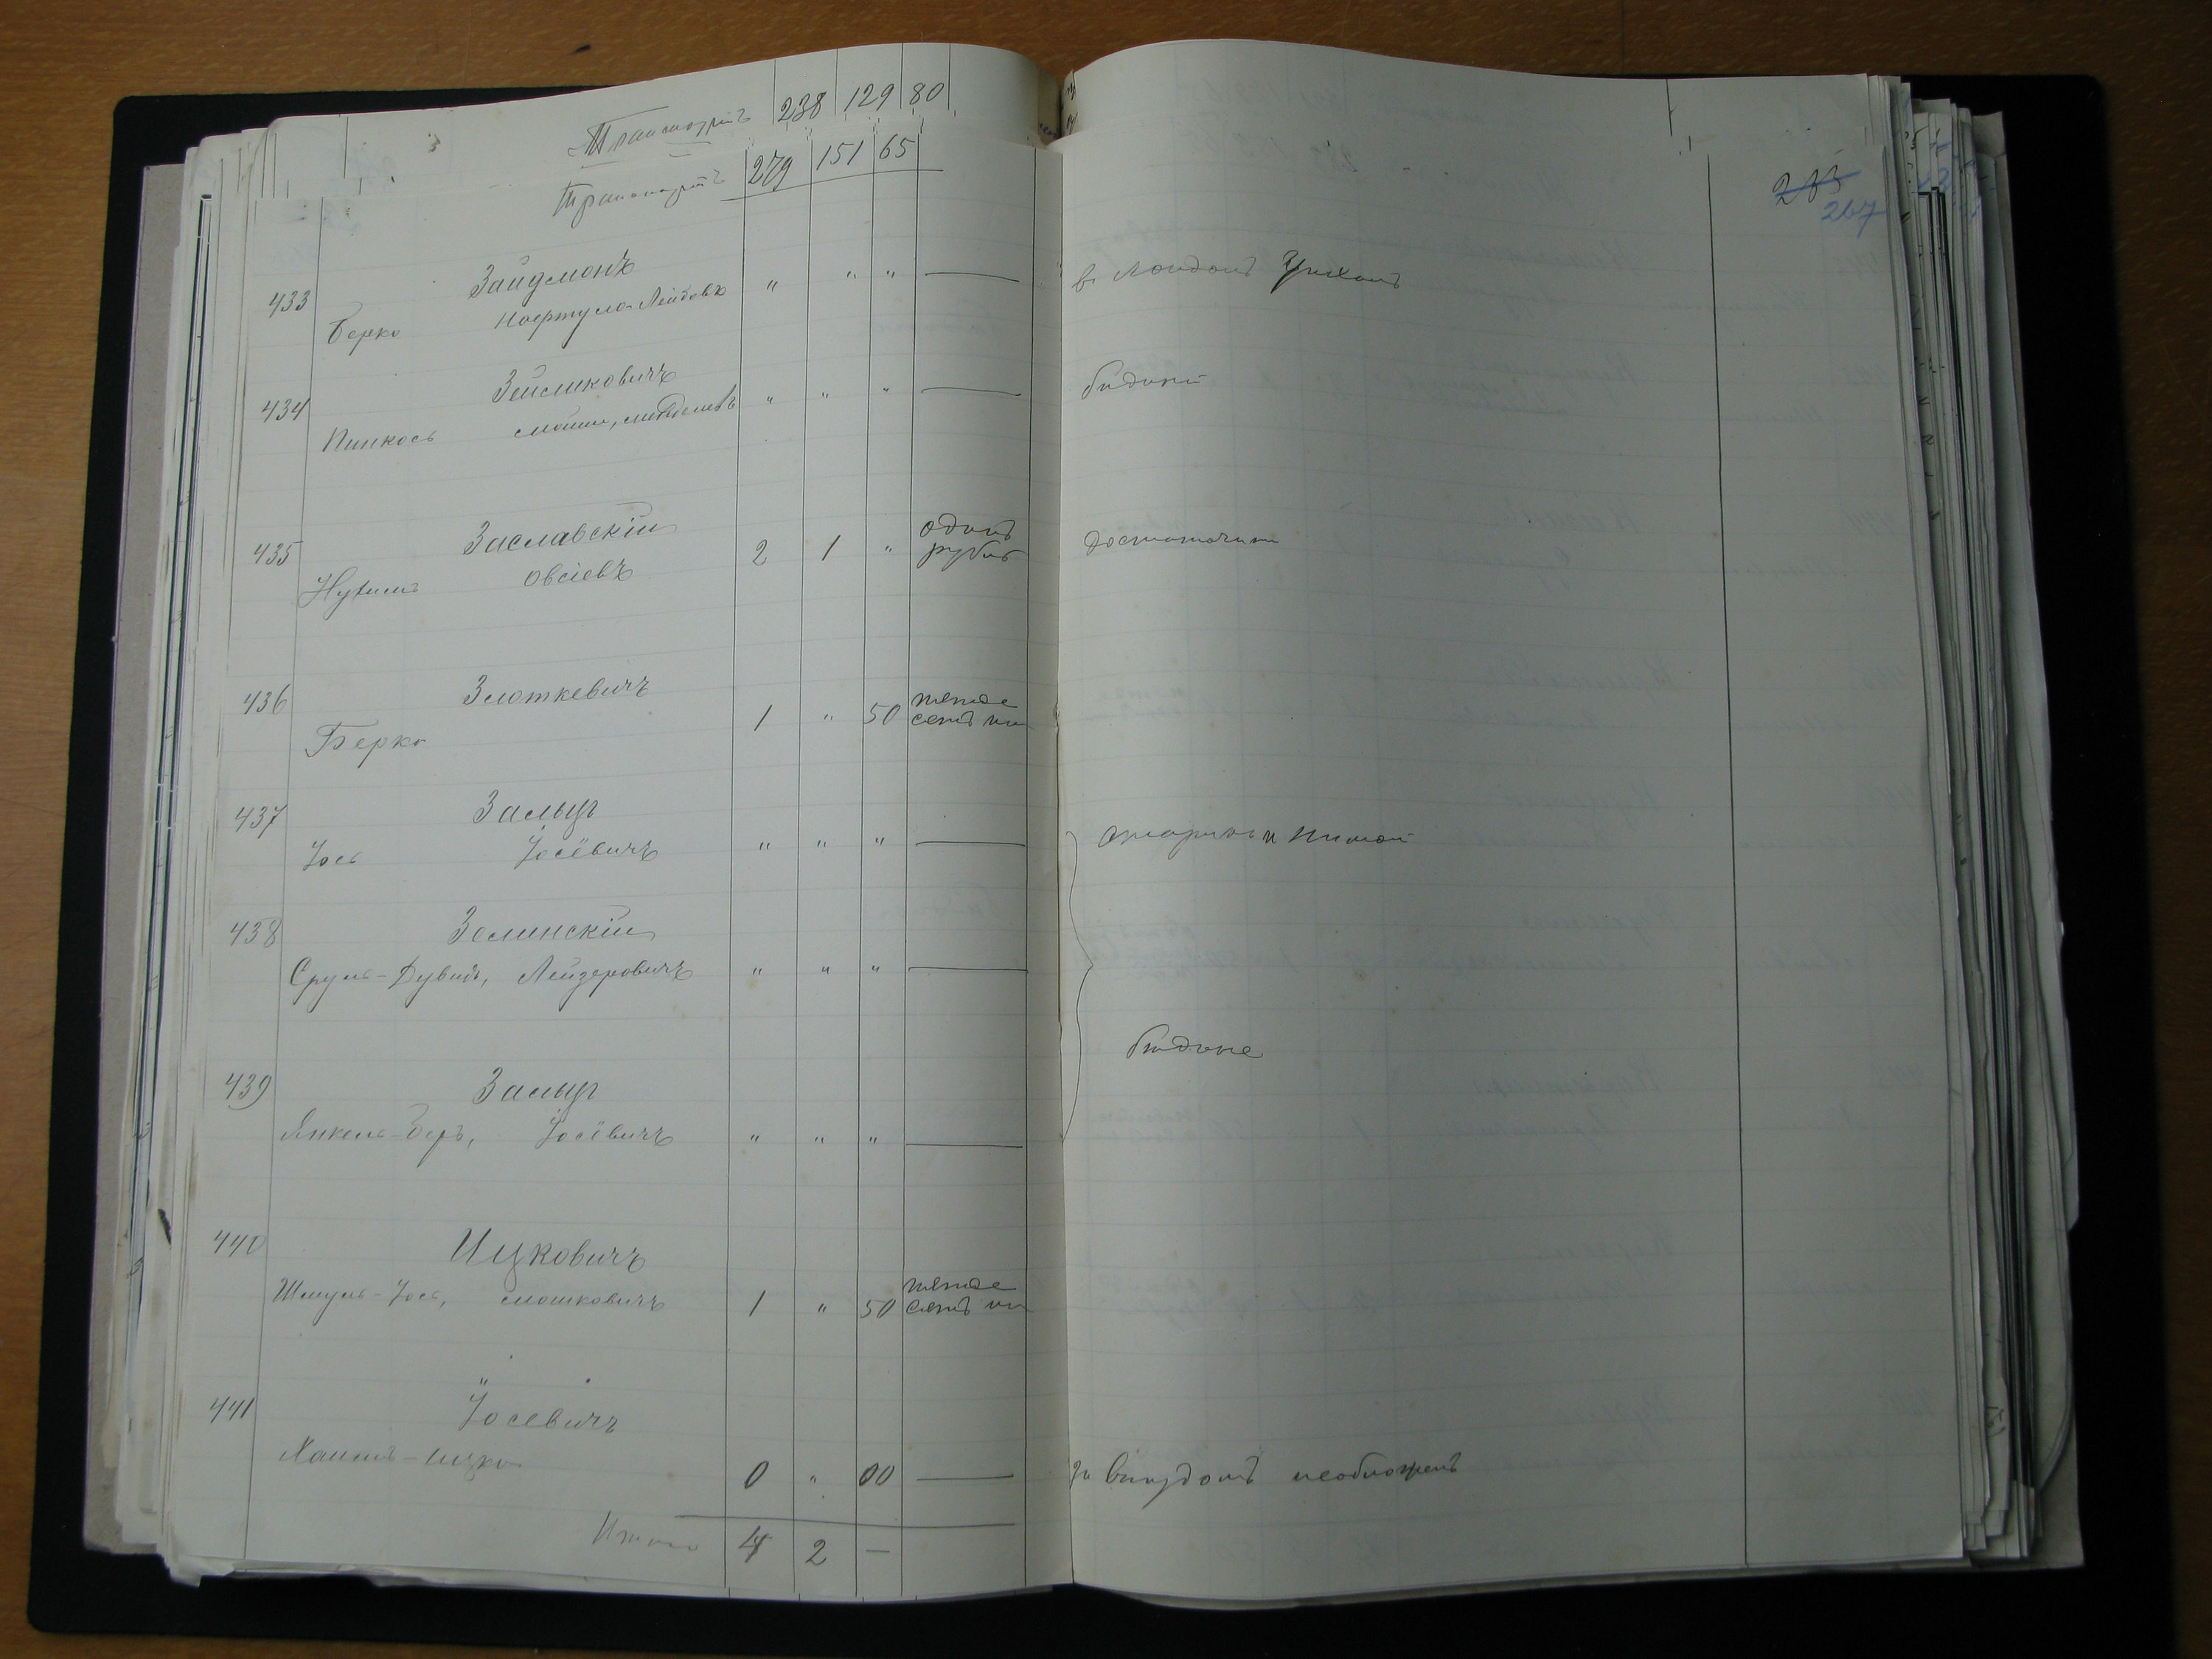 Транспортъ 238 129 80
Транспортъ 279 151 65
265
267
433 Зайдманъ
Берко Нафтуло-Лейбовъ " " " — въ Лондонѣ
434 Зейликовичъ
Пинкось " " " — бѣдный
435 Заславскій
Нухимъ Овсіевъ 2 1 " одинъ рубль достаточный
436 Злоткевичъ
Берко 1 " 50 пятьде
сятъ
437 Залыцъ
Іось Іосёвичъ " " " — старикъ и
438 Зелинскій
Сруль-Дувидъ, Лейзеровичъ " " " —
бѣдные
439 Залыцъ
Янкель-Беръ, Іосёвичъ " " " —
440 Ицковичъ
Шмуль-Іось, Мошковичъ 1 " 50 пятьде
сятъ
441 Іосевичъ
Хаимъ-Ицко 0 " 00 — необложенъ
Итого 4 2 —